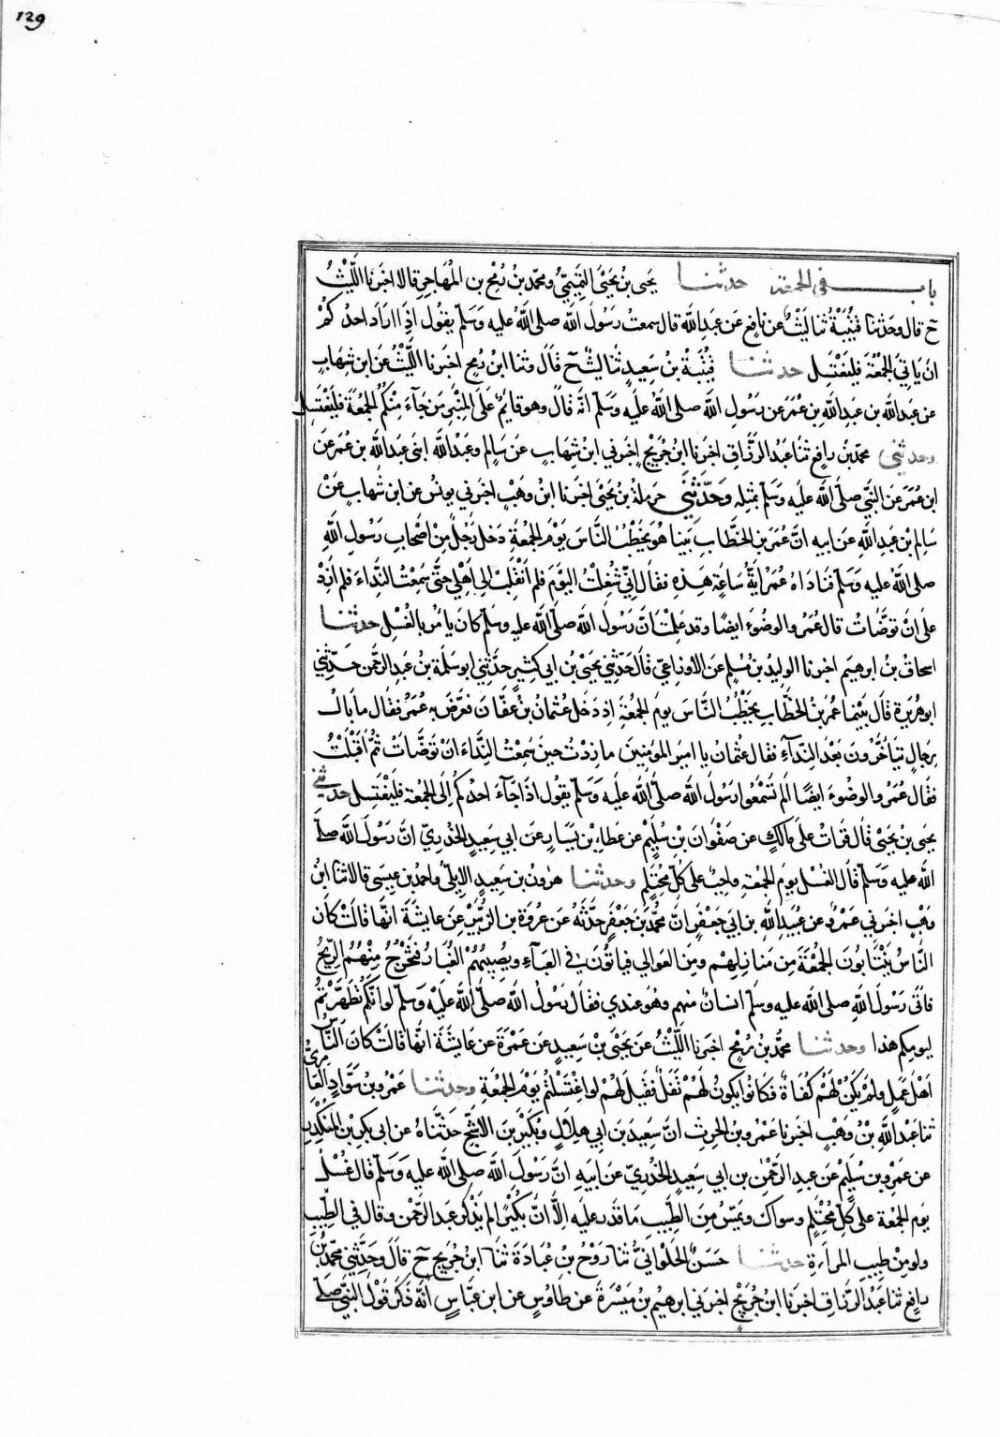 129
باب في الجمعة حدثنا يحيى بن يحيى التميمي ومحمد بن رمح بن المهاجر قالا اخبرنا الليث
ح قال وحدثنا قتيبة ثنا ليث عن نافع عن عبد الله قال سمعت رسول الله صلى الله عليه وسلم يقول اذا اراد احدكم
ان ياتي الجمعة فليغتسل حدثنا قتيبة بن سعيد ثنا ليث ح قال وثنا ابن رمح اخبرنا الليث عن ابن شهاب
عن عبد الله بن عبد الله بن عمر عن رسول الله صلى الله عليه وسلم انه قال وهو قايم على المنبر من جآء منكم الجمعة فليغتسل
وحدثني محمد بن رافع ثنا عبد الرزاق اخبرنا ابن جريج اخبرني ابن شهاب عن سالم وعبد الله ابنى عبد الله بن عمر عن
ابن عمر عن النبي صلى الله عليه وسلم بمثله وحدثني حرملة بن يحيى اخبرنا ابن وهب اخبرني يونس عن ابن شهاب عن
سالم بن عبد الله عن ابيه ان عمر بن الخطاب بينا هو يخطب الناس يوم الجمعة دخل رجل من اصحاب رسول الله
صلى الله عليه وسلم فناداه عمر اية ساعة هذه فقال اني شغلت اليوم فلم انقلب الى اهلي حتى سمعت النداء فلم ازد
على ان توضات قال عمر والوضوء ايضا وقد علمت ان رسول الله صلى الله عليه وسلم كان يامر بالغسل حدثنا
اسحاق بن ابرهيم اخبرنا الوليد بن مسلم عن الاوزاعي قال حدثني يحيى بن ابي كثير حدثني ابو سلمة بن عبد الرحمن حدثني
ابو هريرة قال بينما عمر بن الخطاب يخطب الناس يوم الجمعة اذ دخل عثمان بن عفان فعرض به عمر فقال ما بال
رجال يتاخرون بعد الندآء فقال عثمان يا امير المومنين ما زدت حين سمعت النداء ان توضات ثم اقبلت
فقال عمر والوضوء ايضا الم تسمعوا رسول الله صلى الله عليه وسلم يقول اذا جآء احدكم الى الجمعة فليغتسل حدثني
يحيى بن يحيى قال قرات على مالك عن صفوان بن سليم عن عطاء بن يسار عن ابي سعيد الخدري ان رسول الله صلى
الله عليه وسلم قال الغسل يوم الجمعة واجب على كل محتلم وحدثنا هرون بن سعيد الايلي واحمد بن عيسى قالا ثنا ابن
وهب اخبرني عمرو عن عبيد الله بن ابي جعفر ان محمد بن جعفر حدثه عن عروة بن الزبير عن عايشة انها قالت كان
الناس ينتابون الجمعة من منازلهم ومن العوالي فياتون في العبآء ويصيبهم الغبار فتخرج منهم الريح
فاتى رسول الله صلى الله عليه وسلم انسان منهم وهو عندي فقال رسول الله صلى الله عليه وسلم لو انكم تطهرتم
ليومكم هذا وحدثنا محمد بن رمح اخبرنا الليث عن يحيى بن سعيد عن عمرة عن عايشة انها قالت كان الناس
اهل عمل ولم يكن لهم كفاة فكانوا يكون لهم تفل فقيل لهم لو اغتسلتم يوم الجمعة وحدثنا عمرو بن سواد العامري
ثنا عبد الله بن وهب اخبرنا عمرو بن الحرث ان سعيد بن ابي هلال وبكير بن الاشج حدثناه عن ابي بكر بن المنكدر
عن عمرو بن سليم عن عبد الرحمن بن ابي سعيد الخدري عن ابيه ان رسول الله صلى الله عليه وسلم قال غسل
يوم الجمعة على كل محتلم وسواك ويمس من الطيب ما قدر عليه الا ان بكيرا لم يذكر عبد الرحمن وقال في الطيب
ولو من طيب المراة حدثنا حسن الحلواني ثنا روح بن عبادة ثنا ابن جريج ح قال وحدثني محمد بن
رافع ثنا عبد الرزاق اخبرنا ابن جريج اخبرني ابرهيم بن ميسرة عن طاوس عن ابن عباس انه ذكر قول النبي صلى